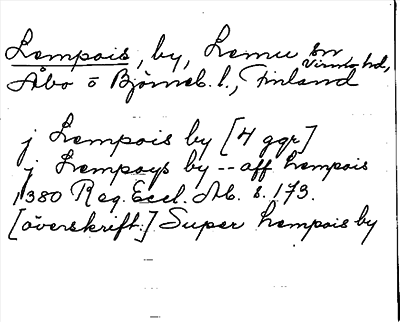 Lempois, by, Lemu sn
Virmo hd,
Åbo o Björneb. l., Finland
j Lempois by [4 ggr]
j Lempoys by -- aff Lempois
1380 Reg. Eccl. Ab. s. 173.
[överskrift:] Super Lempois by